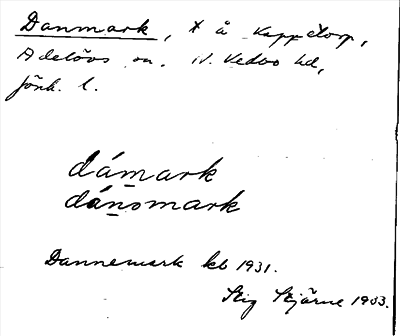 Danmark, x å Kappetorp,
Adelövs sn. N. Vedbo hd,
Jönk. l.
dámark
dánsmark
Dannemark kb 1931.
Stig Stjärne 1903.